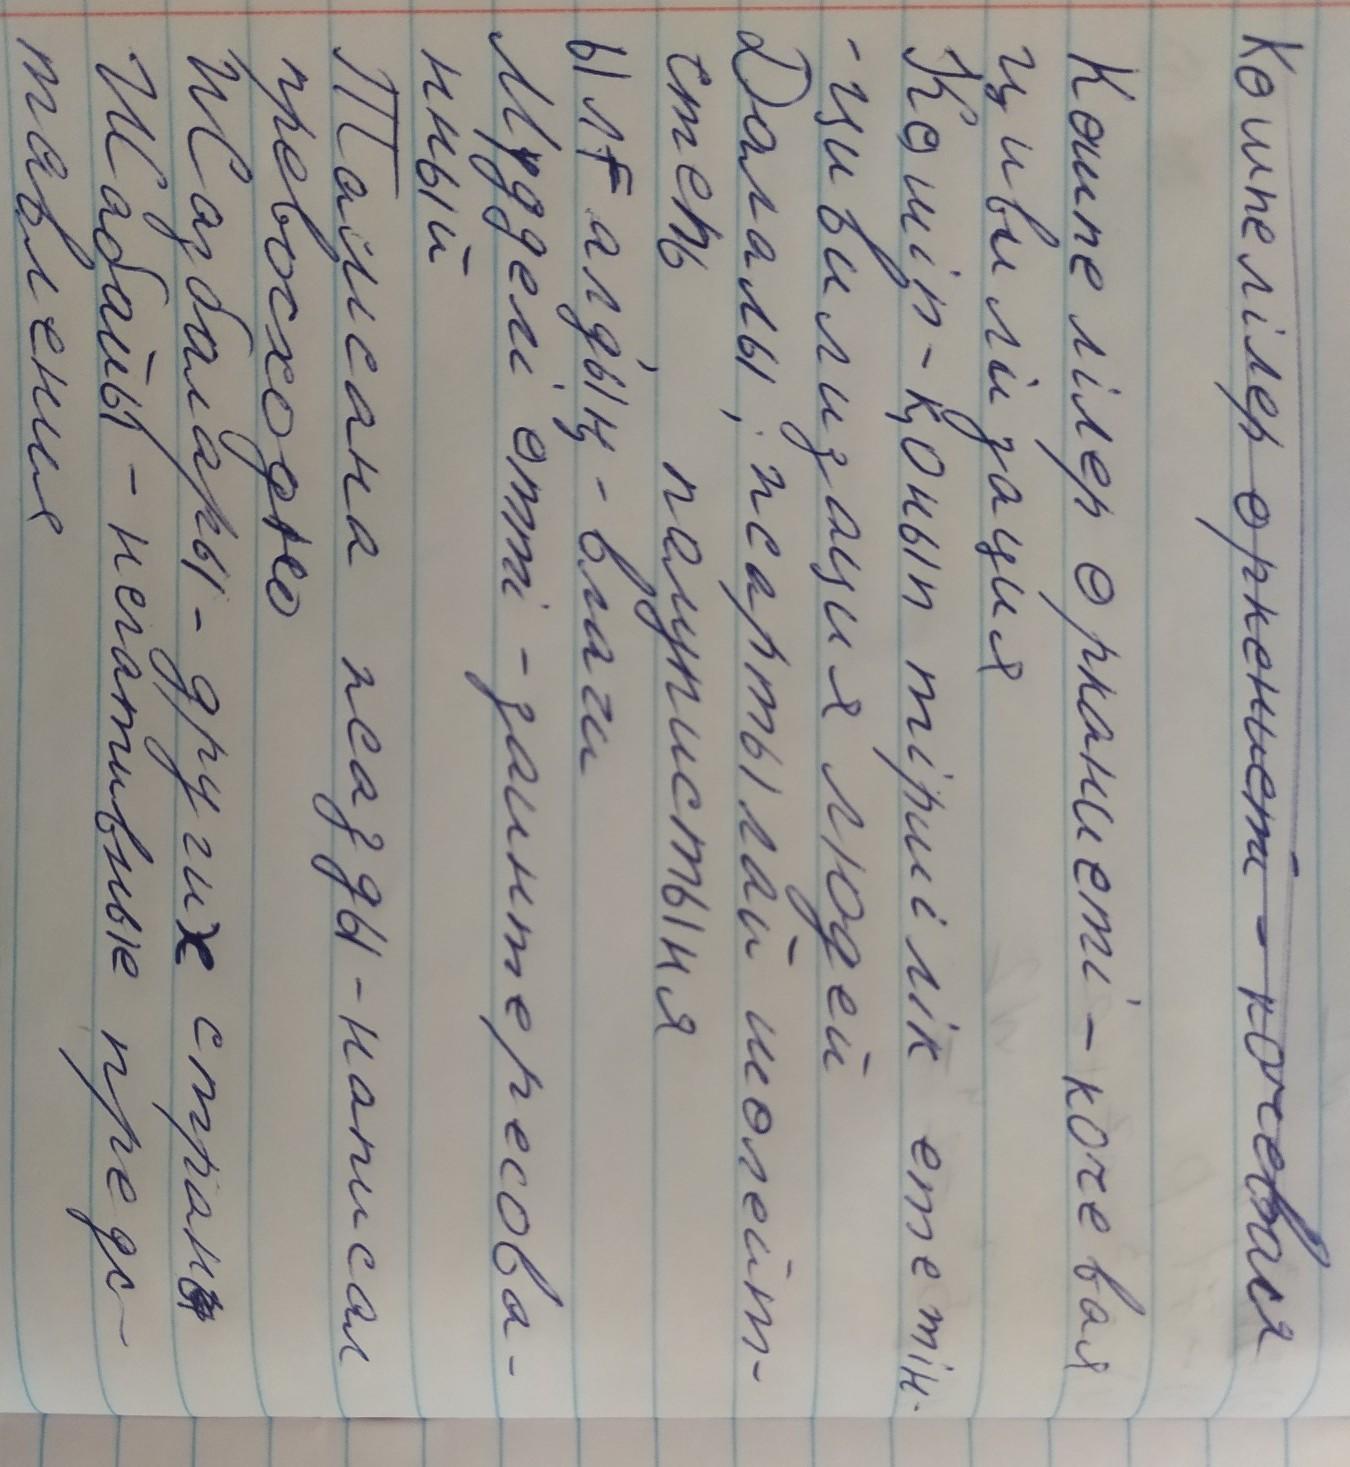 Көшпелілер өркениеті - кочевая
Көшпелілер өркениеті - кочевая
цивилизация
Көшіп-қонып тіршілік ететін-
- цивилизация людей
Далалы, псартылай шөлейт-
степь полупустыня
ылғалдың - влаги
Мүдделі етті - заинтересова-
нный
Пайсана псазды - написал
превосходно
Жазбалары - других стран
Жабайы - негативные предс-
тавления